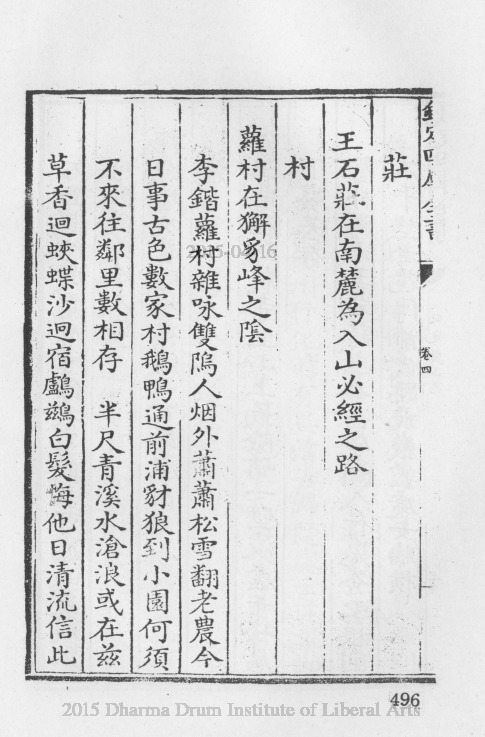 欽定四庫全書
卷四
莊
王石莊在南麓為入山必經之路
村
蘿村在獬豸峰之陰
李鍇蘿村雜咏雙隖人烟外蕭蕭松雪翻老農今
日事古色數家村鵝鴨通前浦豺狼到小園何須
不來往鄰里數相存　半尺青溪水滄浪或在兹
草香迴蛺蝶沙迥宿鸕鷀白髮悔他日清流信此
496
2015 Dharma Drum Institute of Liberal Arts